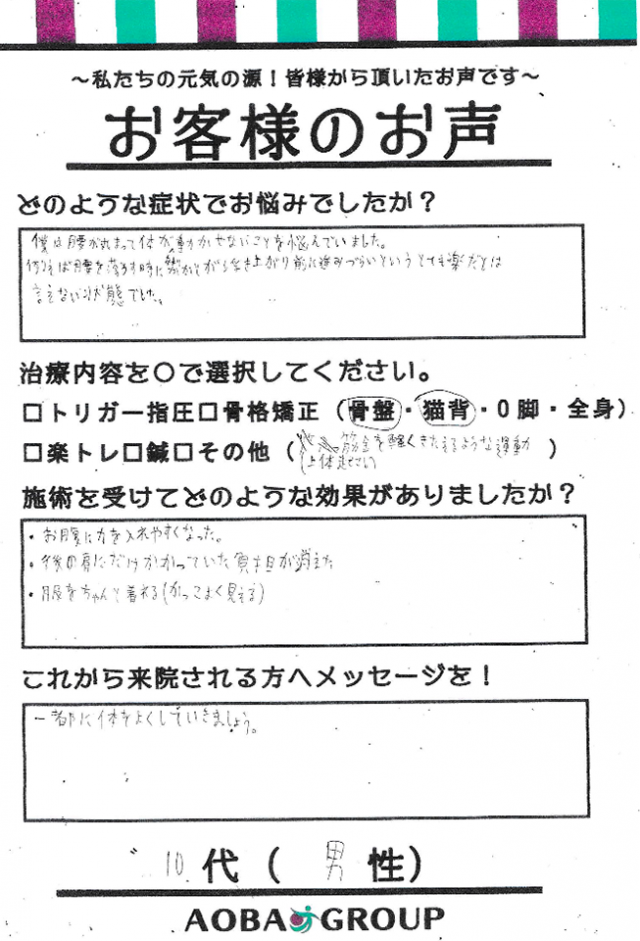 ～私たちの元気の源！皆様から頂いたお声です～
お客様のお声
どのような症状でお悩みでしたか？
僕は腰が丸まって体が動かせないことを悩んでいました。
例えば腰を落とす時に 浮き上がり前に進みづらいというとても楽だとは
言えない状態でした。
治療内容を〇で選択してください。
□トリガー指圧□骨格矯正（骨盤・猫背・O脚・全身）
□楽トレ□鍼□その他（ 筋金を軽くきたえるような運動 ）
上体起こし
施術を受けてどのような効果がありましたか？
・お腹に力を入れやすくなった。
・後の肩にだけかかっていた負担が消えた
・服をちゃんと着れる(かっこよく見える)
これから来院される方へメッセージを！
一緒に体をよくしていきましょう。
10代（男性）
AOBA GROUP